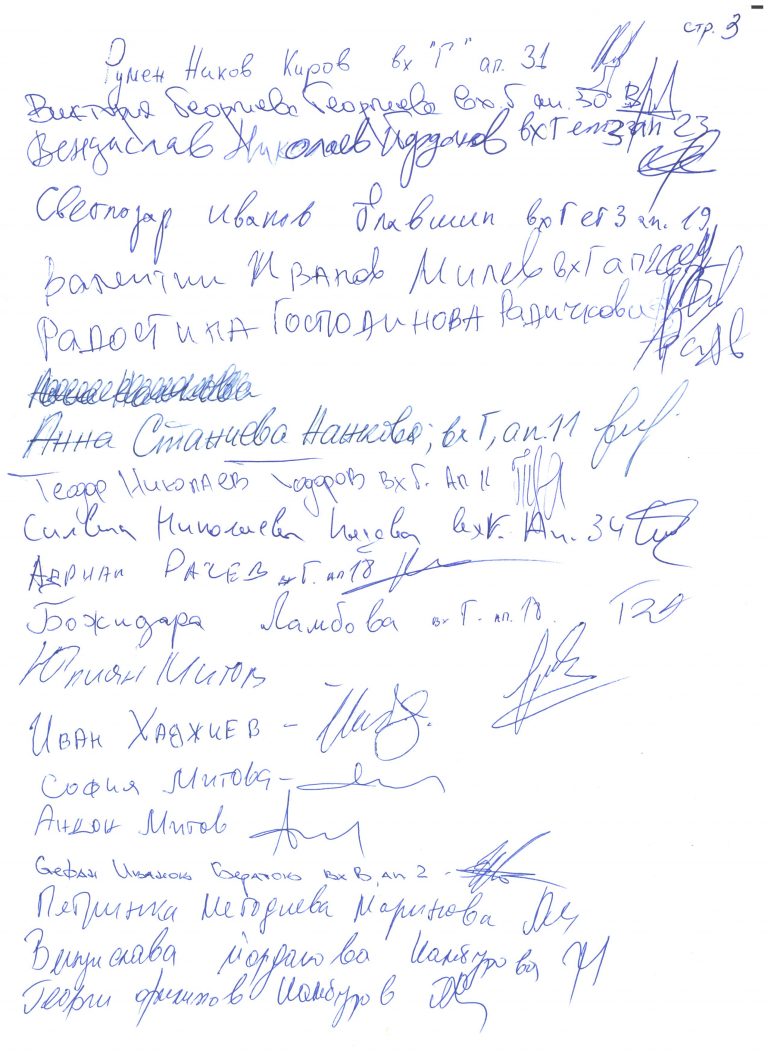 стр. 3
Румен Ников Киров вх "Г" ап. 31
Виктория Георгиева Георгиева вх. Г ап. 30
Венцислав Николаев Йорданов вх Г ет 3 ап 23
Светлозар Иванов Главшип вх Г ет 3 ап. 19
Валентин Иванов Милев вх Г ап
Радостина Господинова Радичкова
Анна Станчева Нанкова; вх Г, ап. 11
Теодор Николаев Тодоров вх Г. Ап 11
Силвия Николаева вх Г. Ап. 34
Адриан Рачев вх Г. ап 18
Божидара Ламбова вх Г. ап. 18
Юлиян Митов
Иван Хаджиев –
София Митова –
Андон Митов
Стефан вх В, ап 2 -
Петринка Методиева Маринова
Венцислава Йорданова Камбурова
Георги Филипов Камбуров